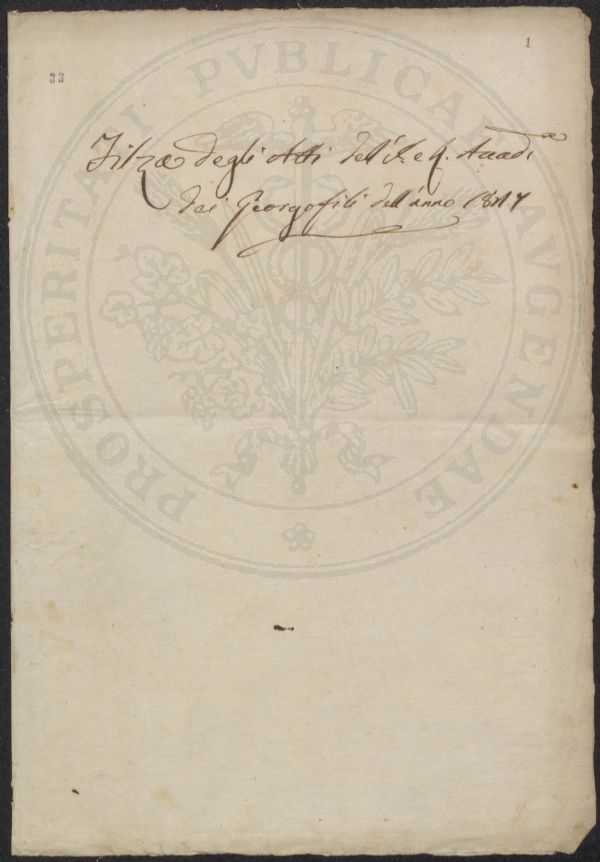 1
33
Filza degli Atti dell'I. e R. Accad.a
dei Georgofili dell'anno 1817
PROSPERITATI PVBLICAE AVGENDAE